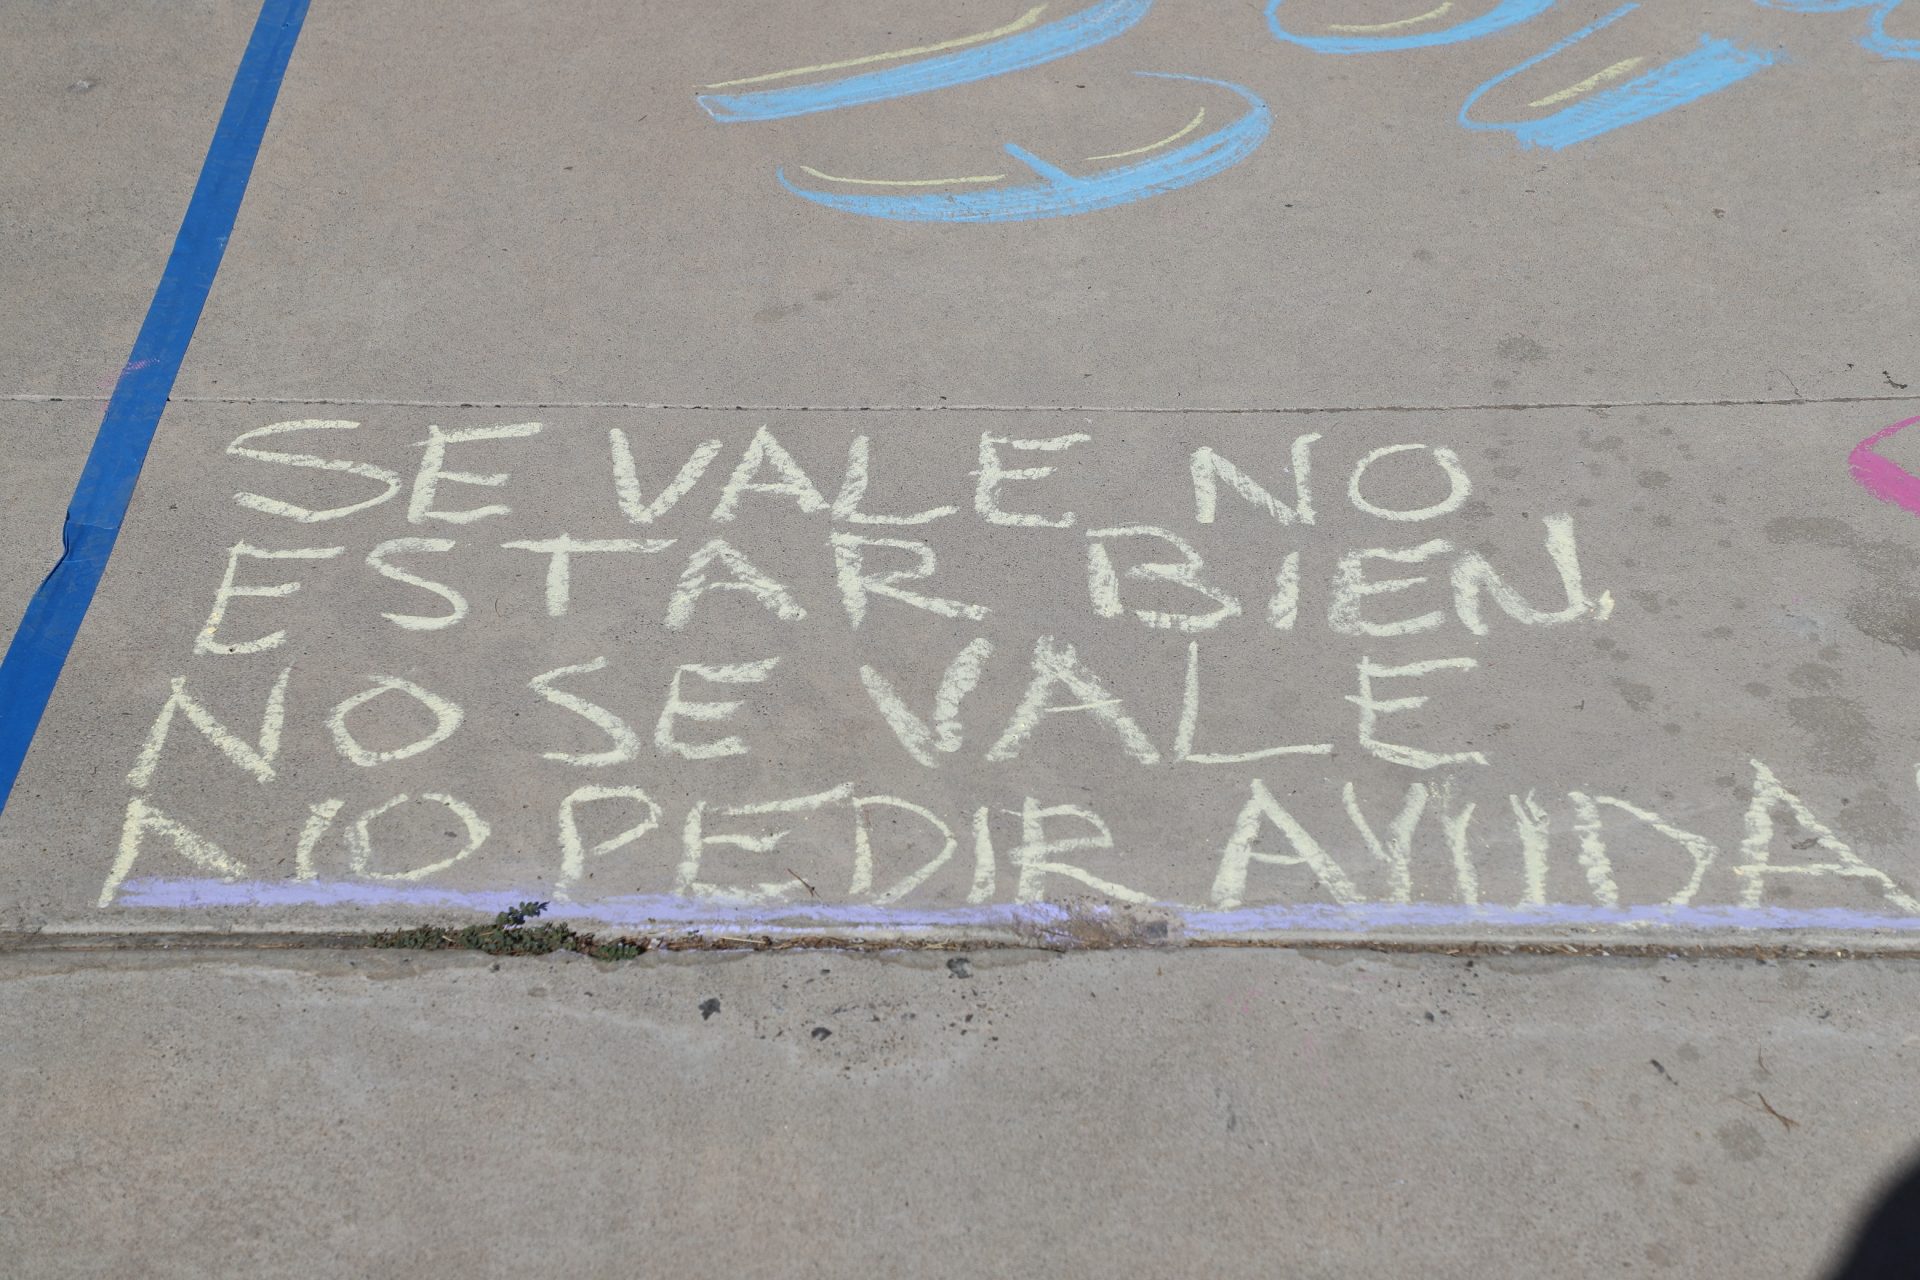 SE VALE NO
ESTAR BIEN.
NO SE VALE
NO PEDIR AYUDA